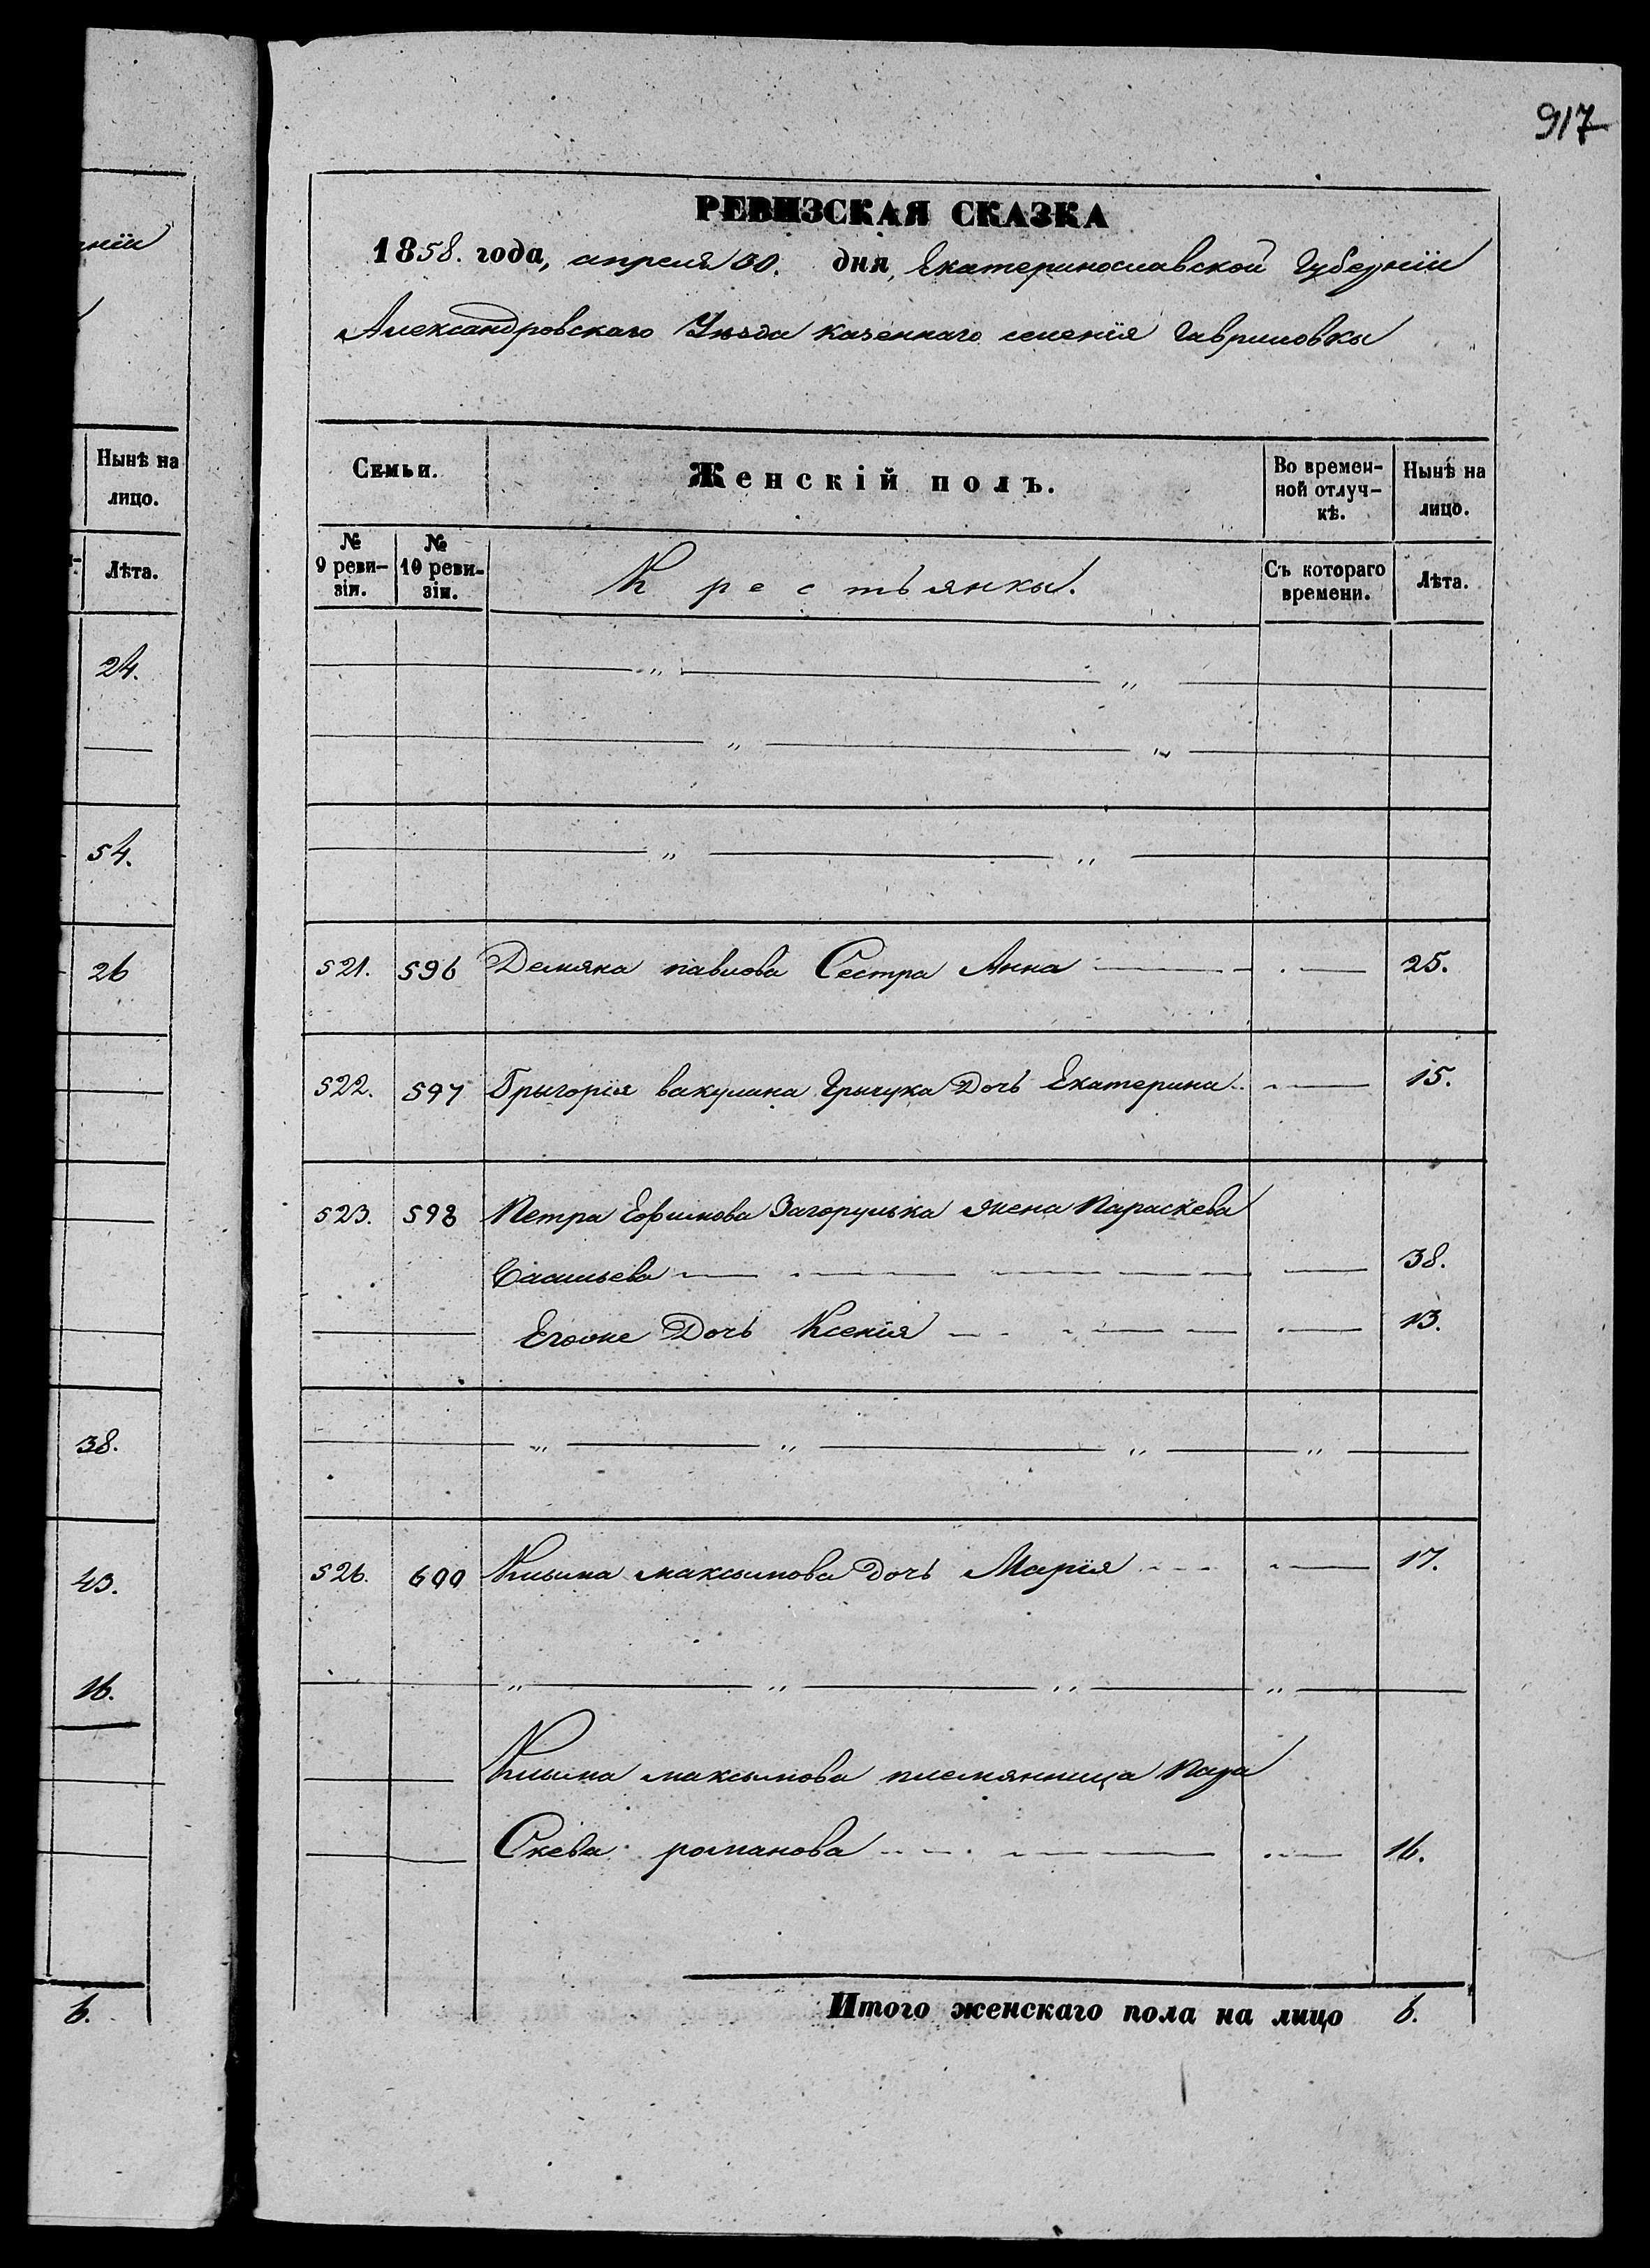 917
РЕВИЗСКАЯ СКАЗКА
1858. года, апреля 30. дня, Екатеринославской Губерніи
Александровскаго Уѣзда казеннаго селенія Гавриловки
Семьи.
Женскій полъ.
Во времен-
ной отлуч-
кѣ.
Нынѣ на
лицо.
№
9 реви-
зіи.
№
10 реви-
зіи.
Крестьянки.
Съ котораго
времени.
Лѣта.
521. 596 Демяна павлова Сестра Анна 25.
522. 597 Григорія вакулина Грицука Дочь Екатерина 15.
523. 598 Петра Ефимова Загорулька жена Параскева
Васильева 38.
Егоже Дочь Ксенія 13.
526. 600 Клыма максимова дочь Марія 17.
Клыма максимова племянница Пара
Скева романова 16.
Итого женскаго пола на лицо 6.
ніи
Нынѣ на
лицо.
Лѣта.
24.
54.
26
38.
43.
16.
6.